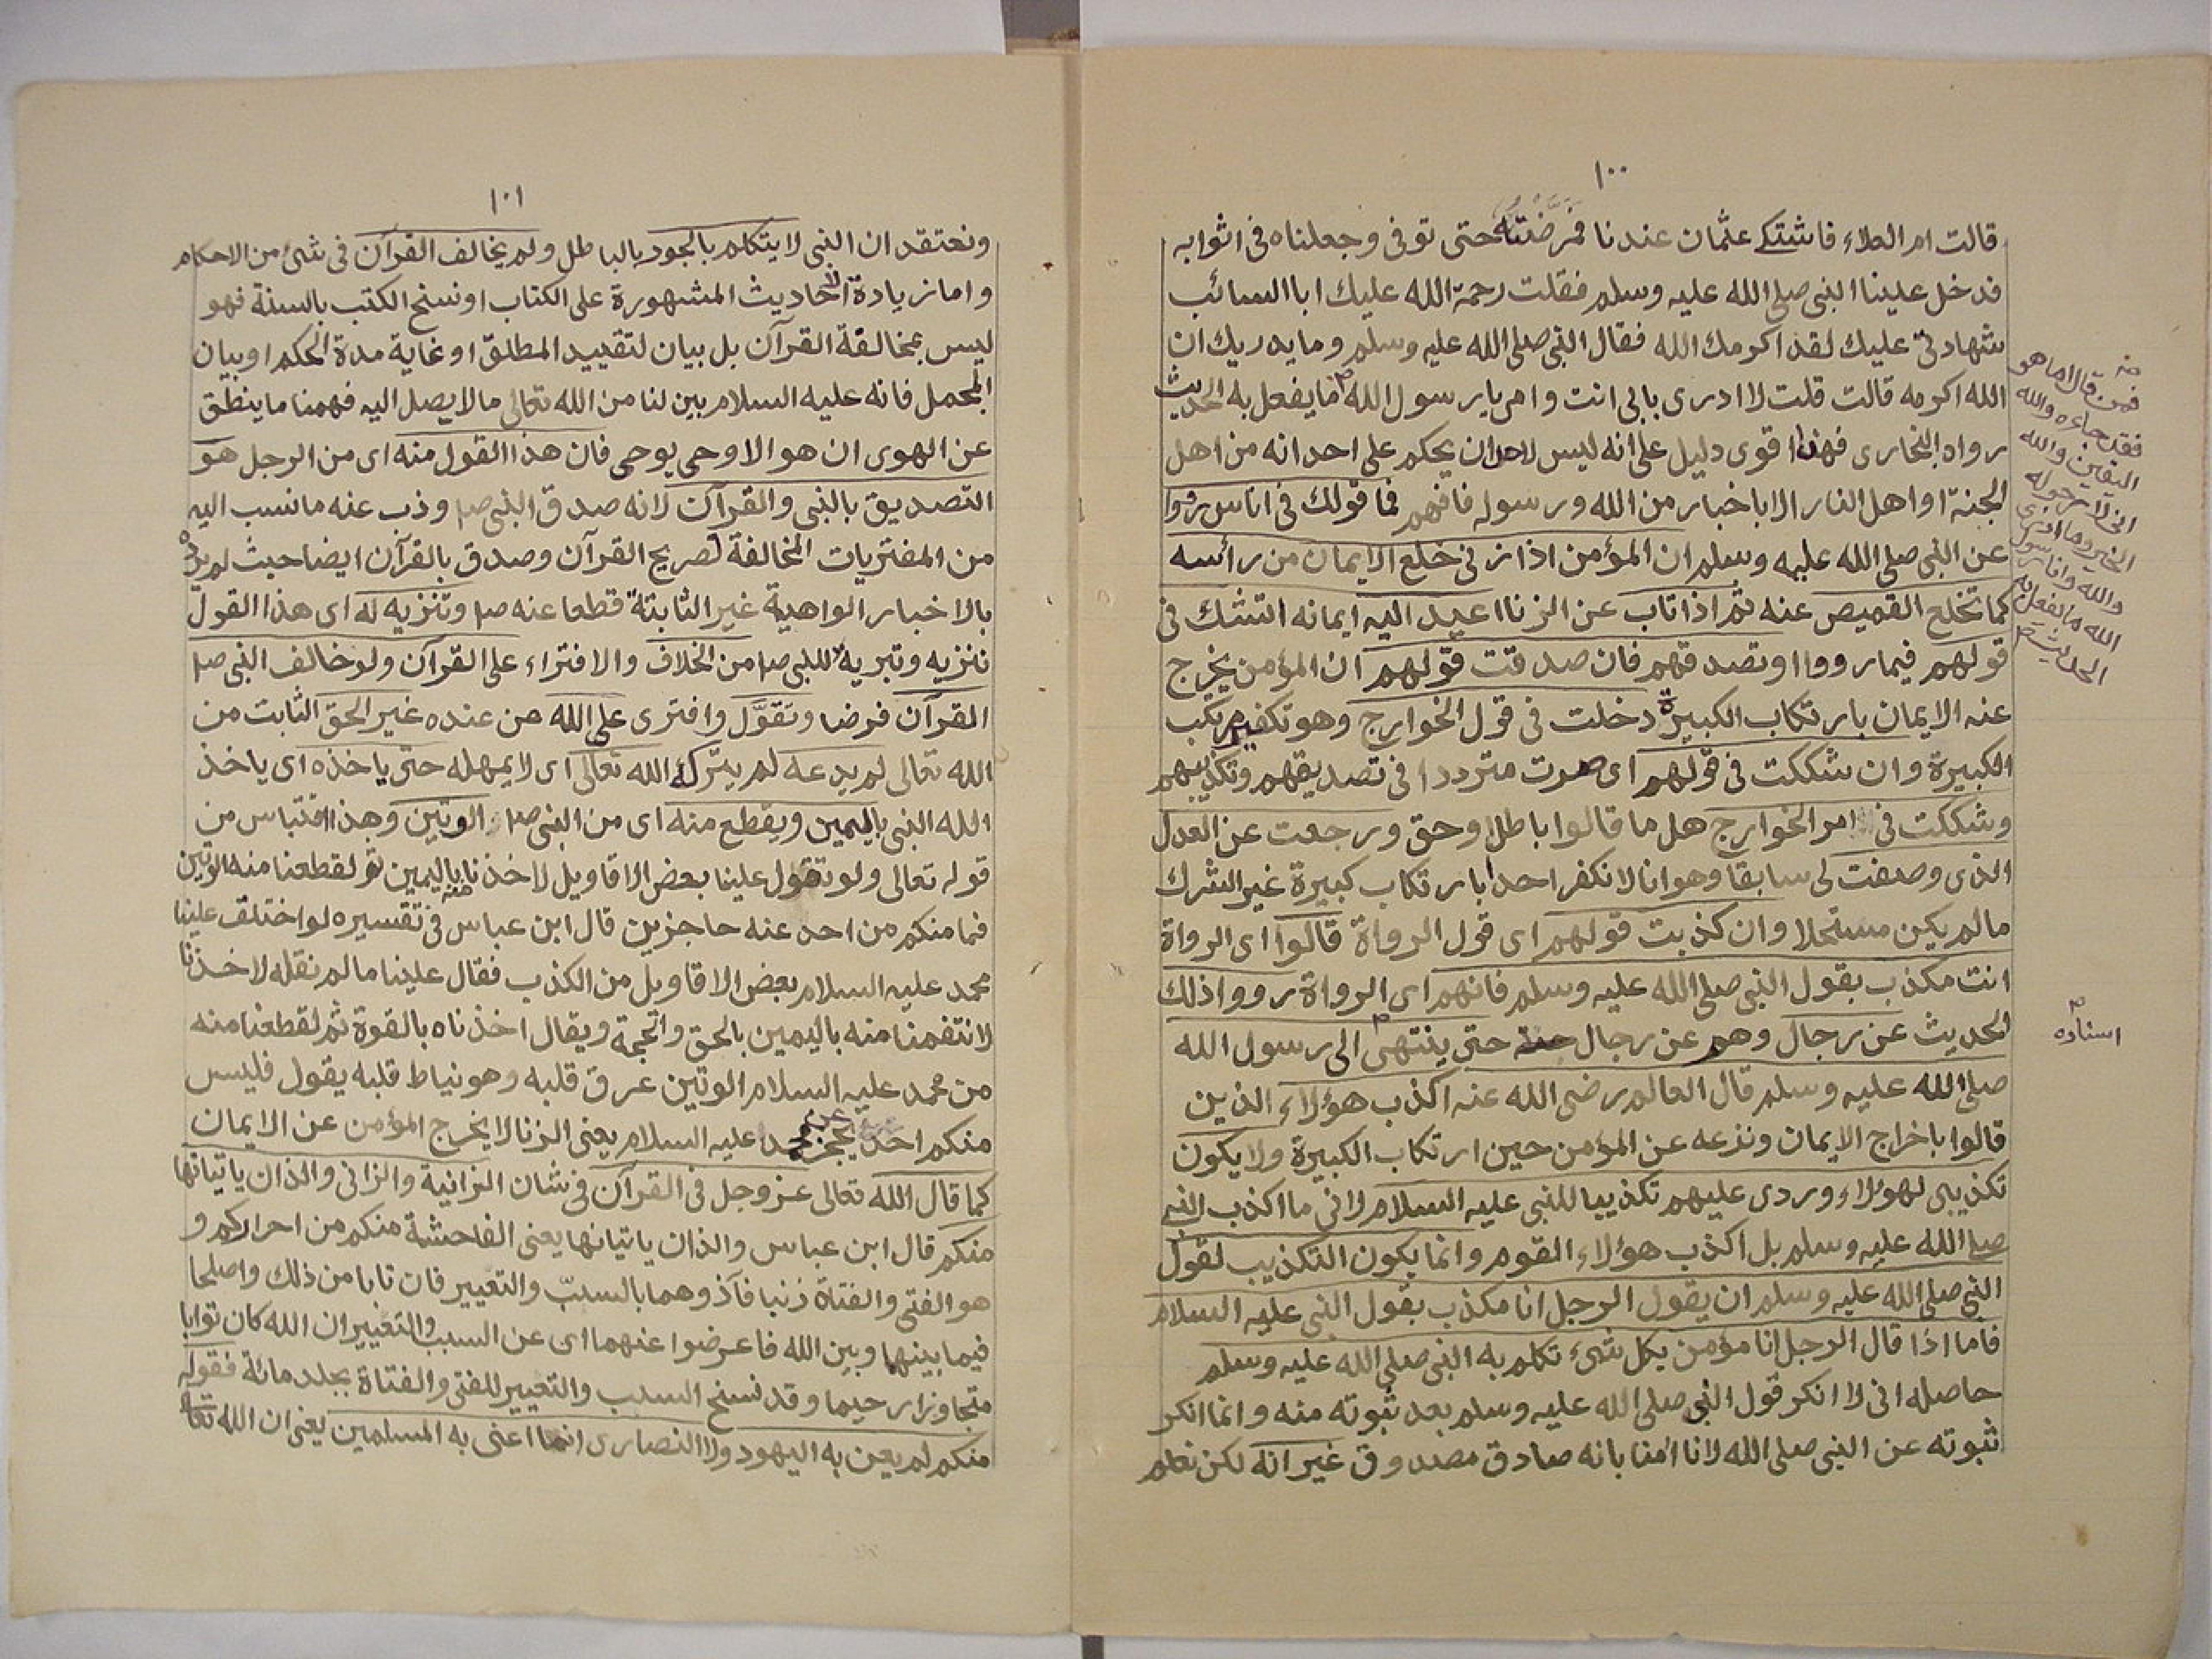 ١٠٠
قالت ام العلاء فاشتكى عثمان عندنا فمرّضته حتى توفى وجعلناه فى اثوابه
فدخل علينا النبى صلى الله عليه وسلم فقلت رحمة الله عليك ابا السائب
شهادتى عليك لقد اكرمك الله فقال النبى صلى الله عليه وسلم وما يدريك ان
الله اكرمه قالت قلت لا ادرى بابى انت وامى يا رسول الله ما يفعل به الحديث
رواه البخارى فهذا اقوى دليل على انه ليس لاحد ان يحكم على احد انه من اهل
الجنة او اهل النار الا باخبار من الله ورسوله فافهم فما قولك فى اناس رووا
عن النبى صلى الله عليه وسلم ان المؤمن اذا زنى خلع الايمان من رأسه
كما تخلع القميص عنه ثم اذا تاب عن الزنا اعيد اليه ايمانه اتشك فى
قولهم فيما رووا او تصدقهم فان صدقت قولهم ان المؤمن يخرج
عنه الايمان بارتكاب الكبيرة دخلت فى قول الخوارج وهو تكفير مرتكب
الكبيرة وان شككت فى قولهم اى صرت مترددا فى تصديقهم وتكذيبهم
وشككت فى امر الخوارج هل ما قالوا باطل او حق ورجعت عن العدل
الذى وصفت لى سابقا وهو انا لا نكفر احدا بارتكاب كبيرة غير الشرك
ما لم يكن مستحلا وان كذبت قولهم اى قول الرواة قالوا اى الرواة
انت مكذب بقول النبى صلى الله عليه وسلم فانهم اى الرواة رووا ذلك
الحديث عن رجال وهم عن رجال حتى ينتهى الى رسول الله
صلى الله عليه وسلم قال العالم رضى الله عنه اكذب هؤلاء الذين
قالوا باخراج الايمان ونزعه عن المؤمن حين ارتكاب الكبيرة ولا يكون
تكذيبى لهؤلاء وردى عليهم تكذيبا للنبى عليه السلام لانى ما اكذب النبى
صلى الله عليه وسلم بل اكذب هؤلاء القوم وانما يكون التكذيب لقول
النبى صلى الله عليه وسلم ان يقول الرجل انا مكذب بقول النبى عليه السلام
فاما اذا قال الرجل انا مؤمن بكل شىء تكلم به النبى صلى الله عليه وسلم
حاصله انى لا انكر قول النبى صلى الله عليه وسلم بعد ثبوته منه وانما انكر
ثبوته عن النبى صلى الله لانا امنا بانه صادق مصدوق غير انه لكن نعلم
فمن قال اما هو
فقد جاءه والله
اليقين والله
انى لارجو له
الخير وما ادرى
والله وانا رسول
الله ما يفعل به
الحديث
اسناده
١٠١
ونعتقد ان النبى لا يتكلم بالجود بالباطل ولم يخالف القرآن فى شىء من الاحكام
واما زيادة الاحاديث المشهورة على الكتاب او نسخ الكتب بالسنة فهو
ليس بمخالفة القرآن بل بيان لتقييد المطلق او غاية مدة الحكم او بيان
المجمل فانه عليه السلام بين لنا من الله تعالى ما لا يصل اليه فهمنا ما ينطق
عن الهوى ان هو الا وحى يوحى فان هذا القول منه اى من الرجل هو
التصديق بالنبى والقرآن لانه صدق النبى صلم وذب عنه ما نسب اليه
من المفتريات المخالفة لصريح القرآن وصدق بالقرآن ايضا حيث لم يرده
بالاخبار الواهية غير الثابتة قطعا عنه صلم وتنزيه له اى هذا القول
تنزيه وتبريه للنبى صلم من الخلاف والافتراء على القرآن ولو خالف النبى صلم
القرآن فرضا وتقوّل وافترى على الله من عنده غير الحق الثابت من
الله تعالى لم يدعه لم يتركه الله تعالى اى لا يمهله حتى ياخذه اى ياخذ
الله النبى باليمين ويقطع منه اى من النبى صلم الوتين وهذا اقتباس من
قوله تعالى ولو تقول علينا بعض الاقاويل لاخذنا منه باليمين ثم لقطعنا منه الوتين
فما منكم من احد عنه حاجزين قال ابن عباس فى تفسيره لو اختلق علينا
محمد عليه السلام بعض الاقاويل من الكذب فقال علينا ما لم نقله لاخذنا
لانتقمنا منه باليمين بالحق والحجة ويقال اخذناه بالقوة ثم لقطعنا منه
من محمد عليه السلام الوتين عرق قلبه وهو نياط قلبه يقول فليس
منكم احد يحجز عن محمد عليه السلام يعنى الزنا لا يخرج المؤمن عن الايمان
كما قال الله تعالى عز وجل فى القرآن فى شان الزانية والزانى والذان ياتيانها
منكم قال ابن عباس والذان ياتيانها يعنى الفاحشة منكم من احراركم و
هو الفتى والفتاة زنيا فآذوهما بالسبّ والتعيير فان تابا من ذلك واصلحا
فيما بينهما وبين الله فاعرضوا عنهما اى عن السبب والتعيير ان الله كان توابا
متجاوزا رحيما وقد نسخ السبب والتعيير للفتى والفتاة بجلد مائة فقوله
منكم لم يعن به اليهود ولا النصارى انما اعنى به المسلمين يعنى ان الله تعالى